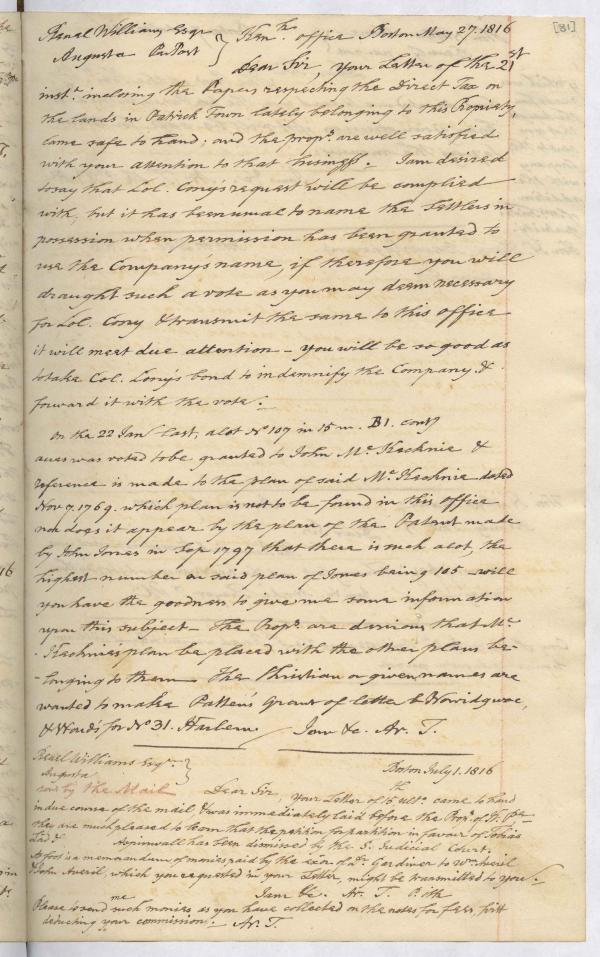 [81]
Reuel Williams Esqr } Ken. h. office Boston May 27. 1816
Augusta Pr Post
Dear Sir, your Letter of the 21st
inst. inclosing the Papers respecting the Direct Tax on
the lands in Patrick Town lately belonging to this Propriety,
came safe to hand; and the Prop.s are well satisfied
with your attention to that business. I am desired
to say that Col. Cony's request will be complied
with, but it has been usual to name the Settlers in
possession when permission has been granted to
use the Company's name, if therefore you will
draught such a vote as you may deem necessary
for Col. Cony & transmit the same to this office
it will meet due attention - you will be so good as
to take Col. Cony's bond to indemnify the Company &
forward it with the vote.
On the 22 Jany last, a lot No 107 in 15 m. B1. contg
acres was voted to be granted to John Mc Kechnie &
reference is made to the plan of said Mc Kechnie dated
Nov 7. 1769. which plan is not to be found in this office
nor does it appear by the plan of the Patent made
by John Jones in Sep 1797 that there is such a lot, the
highest number on said plan of Jones being 105 - will
you have the goodness to give me some information
upon this subject - The Prop.s are desirous that Mc
Kechnies plan be placed with the other plans be-
-longing to them - The Christian or given names are
wanted to make Pattens Grant of letter & Norridgwoc,
& Woods for No 31. Harlem. I am &c. Ar. T.
Reuel Williams Esqr. } Boston July 1. 1816
Augusta
sent by The Mail Dear Sir, your Letter of 15th ulto. came to hand
in due course of the mail, & was immediately laid before the Propr. of K. P.
They are much pleased to learn that the petition for partition in favour of Tobias
Aspinwall has been dismissed by the S. Judicial Court.
At foot is a memorandum of monies paid by the Exr. of Dr Gardiner to Wm Averil
& John Averil, which you requested in your Letter, might be transmitted to you.
I am &c. Ar. T.
Please to send me such monies as you have collected on the notes for fees
deducting your commission. Ar. T.